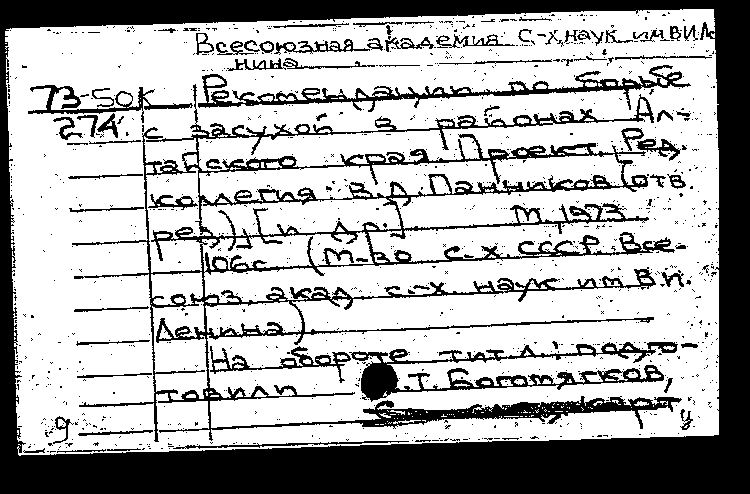 Всесоюзная академия с-х. наук им. В.И. Ле-
нина.
73-50К Рекомендации по борьбе
274. с засухой в районах Ал-
тайского края. Проект. Ред.
коллегия: В.Д. Панников (отв.
ред.), [и др.]. М., 1973.
106с. (М-во с.-х. СССР. Все-
союз. акад. с.-х. наук им. В.И.
Ленина).
На обороте тит. л.: подго-
товили .Т. Боготягков,
карт
д у